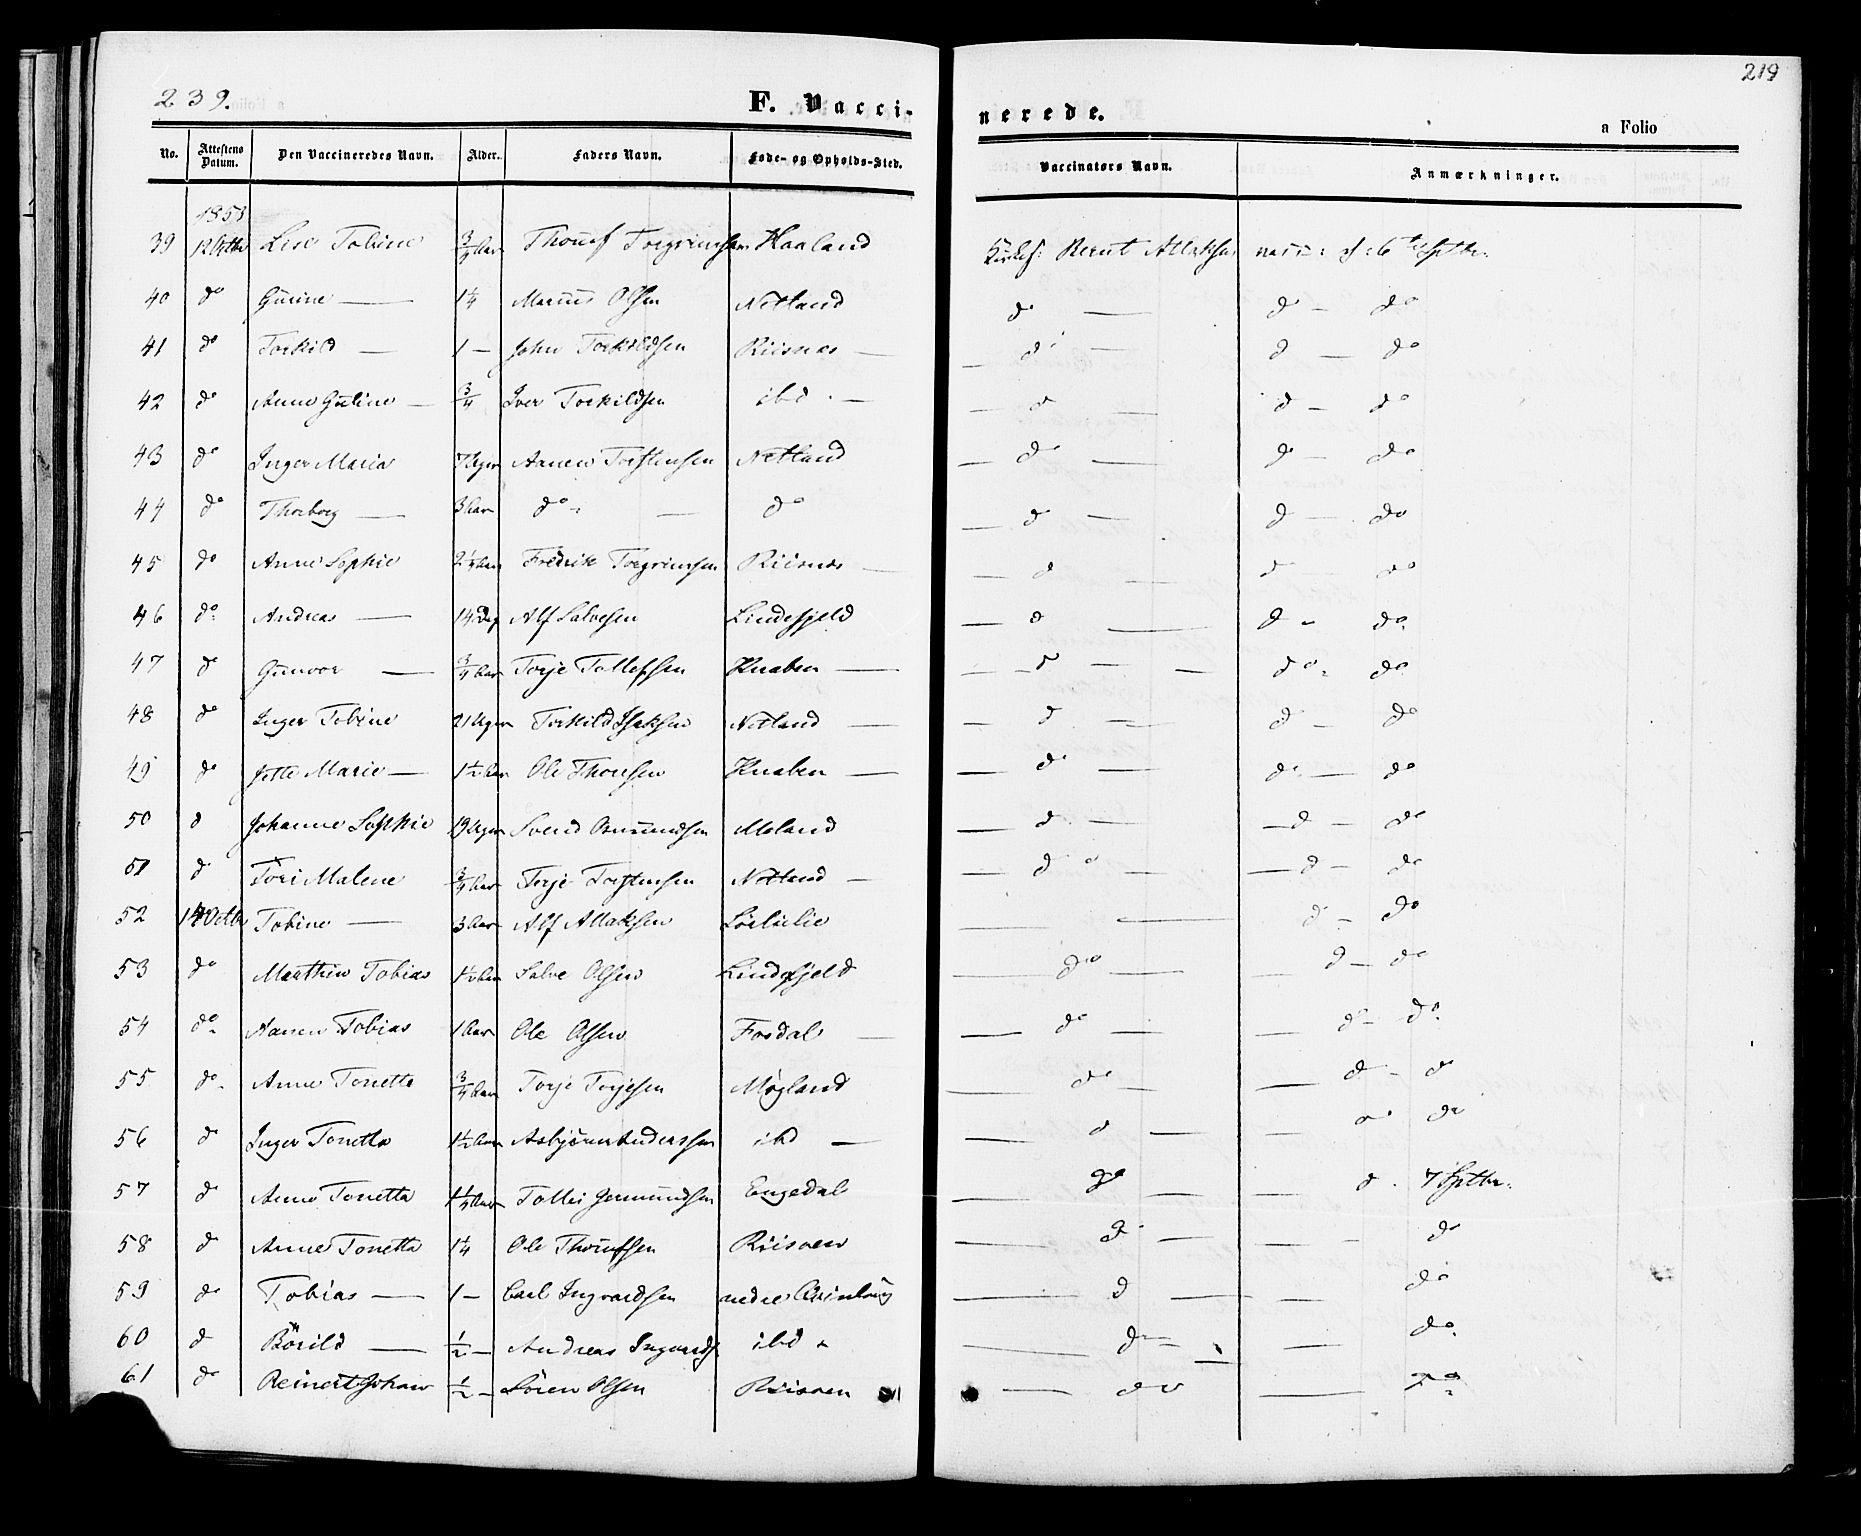 239.
219
F. Vacci-
nerede.
a Folio
No. Attestens Datum. Den Vaccineredes Navn. Alder. Faders Navn. Føde- og Opholds-Sted. Vaccinators Navn. Anmærkninger.
1853
39 12 Octbr Lise Tobine 3/4 Aar Thomas Torgrimsen Haaland Bernt Atlaksen vacc: d: 6te Sptbr.
40 do Gurine — 1 1/4 Marcus Olsen Netland do — do — do
41 do Torkild — 1 — John Torkildsen Riisnes — — do — d — do
42 do Anne Guline — 3/4 Iver Torkildsen ibd. — — d — d — do
43 do Inger Maria 7 Uger Aanen Torstensen Netland — do — do — do
44 do Thorborg — 3 Aar do — do — do — d — do
45 do Anne Sophie 2 1/4 Aar Fredrik Torgrimsen Riisnes — — d — d do
46 do Andreas — 14 Dag Alf Salvesen Lindefjeld — d — d — do
47 do Gunvor — 3/4 Aar Torje Tollefsen Knaben — — d — — do. do
48 do Inger Tobine 21 Uger Torkild Isaksen Netland — — d — d — do
49 do Jette Marie — 1 1/2 Aar Ole Thomsen Knaben — — do — do — do
50 d Johanne Sophie 19 Uger Svend Osmundsen Moland — d — — d — do
51 d Tori Malene 3/4 Aar Torje Torstensen Netland — — do — — d — do
52 14 Octbr Tobine — 3 Aar Alf Atlaksen — — d — do
53 do Marthin Tobias 1 1/2 Aar Salve Olsen Lindefjeld — do — — d — do
54 do Aanen Tobias 1 Aar Ole Olsen Fosdal — — do — — d — do
55 do Anne Tonette 3/4 Aar Torje Torjesen Møgland — do — — d — d
56 d Inger Tonette 1 1/2 Aar Asbjørn Anderssen ibd — — d — — d do
57 d Anne Tonetta 1 1/4 Aar Tollei Germundsen Engedal — do — — d. 7 Sptbr.
58 d Anne Tonetta 1 1/4 Ole Thomsen Risoen — d — — — do
59 do Tobias — 1 — Carl Ingvardsen — d — — do
60 d Börild — 1/2 — Andreas Ingvards ibd — d — — do
61 do Reinert Johan 1/2 — Sören Olsen Riisoen — do — do